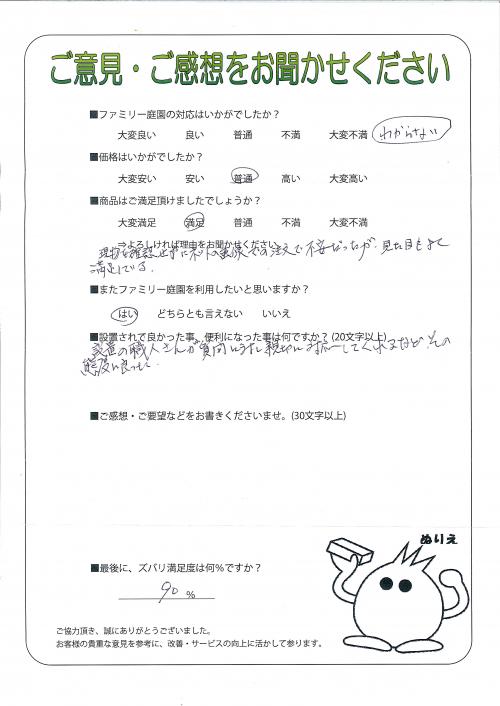 ご意見・ご感想をお聞かせください
■ファミリー庭園の対応はいかがでしたか？
大変良い 良い 普通 不満 大変不満 わからない
■価格はいかがでしたか？
大変安い 安い 普通 高い 大変高い
■商品はご満足頂けましたでしょうか？
大変満足 満足 普通 不満 大変不満
⇒よろしければ理由をお聞かせください
現物を確認せずにネットの画像での注文で不安だったが、見た目もよく
満足している。
■またファミリー庭園を利用したいと思いますか？
はい どちらとも言えない いいえ
■設置されて良かった事、便利になった事は何ですか？(20文字以上)
設置の職人さんが質問にも親切に対応してくれるなど、その
態度は良かった。
■ご感想・ご要望などをお書きくださいませ。(30文字以上)
ぬりえ
■最後に、ズバリ満足度は何%ですか？
90 %
ご協力頂き、誠にありがとうございました。
お客様の貴重な意見を参考に、改善・サービスの向上に活かして参ります。